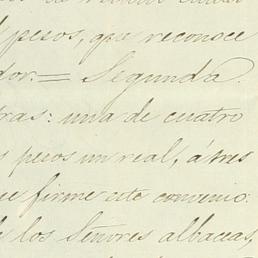 pesos, que reconoce
dor. = Segunda.
tras: una de cuatro
pesos un real, á tres
ue firme este convenio.
los Señores albaceas,